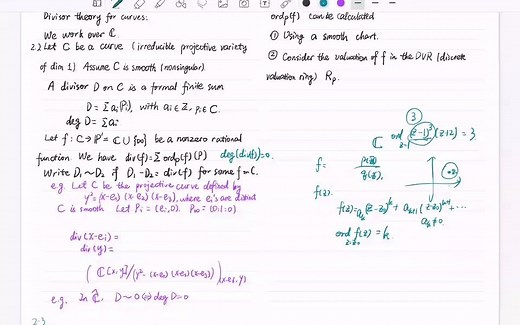 Divisor theory for curves:
We work over ℂ
2.2 Let C be a curve (irreducible projective variety
of dim 1) Assume C is smooth (nonsingular).
A divisor D on C is a formal finite sum
D = Σ aᵢ[Pᵢ], with aᵢ∈ℤ, Pᵢ∈C.
deg D = Σaᵢ
Let f: C→ℙ¹ = ℂ∪{∞} be a nonzero rational
function. We have div(f)=Σ ordp(f)(P) deg(div f)=0.
Write D₁~D₂ if D₁-D₂ = div(f) for some f
e.g. Let C be the projective curve defined by
y²=(x-e₁)(x-e₂)(x-e₃), where eᵢ's are distinct
C is smooth Let Pᵢ = (eᵢ,0). P∞ = (0:1:0)
div(x-eᵢ) =
div(y) =
(ℂ[x,y]/(y²-(x-e₁)(x-e₂)(x-e₃)))(x-e₁,y)
e.g. In D~0 ⇔ deg D=0
2.3
ordp(f) can be calculated
① Using a smooth chart.
② Consider the valuation of f in the DVR (discrete
valuation ring) Rp.
③
ℂ ord z=1 (z-1)³(z+2) = 3
f= p(z)/q(z),
f(z).
f(z)=aₖ(z-z₀)ᵏ+aₖ₊₁(z-z₀)ᵏ⁺¹+⋯
aₖ≠0
ord z=z₀ f(z) = k